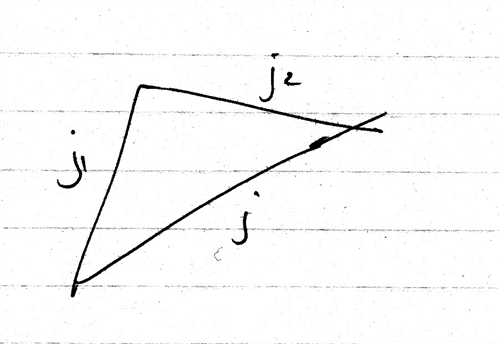 j2
j1
j